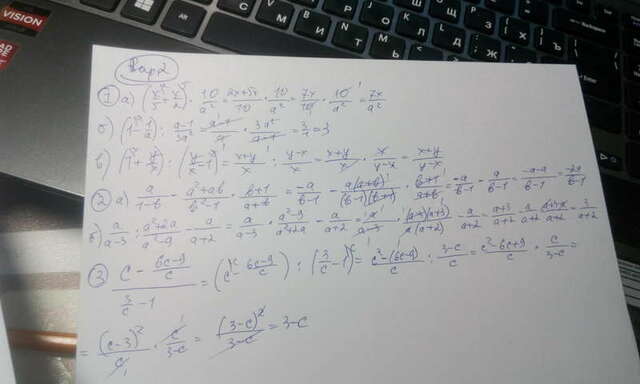 VISION
Вар 2
① а) (x/5 + x/2) · 10/a² = 2x+5x/10 · 10/a² = 7x/10 · 10/a² = 7x/a²
б) (1 - 1/a) : a-1/3a² = a-1/a · 3a²/a-1 = 3
в) (1 + y/x) : (y/x - 1) = x+y/x : y-x/x = x+y/x · x/y-x = x+y/y-x
② а) a/1-b - a²+ab/b²-1 · b+1/a+b = -a/b-1 - a(a+b)/(b-1)(b+1) · b+1/a+b = -a/b-1 - a/b-1 = -a-a/b-1 = -2a/b-1
б) a/a-3 : a²+2a/a²-9 - a/a+2 = a/a-3 · a²-9/a²+2a - a/a+2 = a/a-3 · (a-3)(a+3)/a(a+2) - a/a+2 = a+3/a+2 - a/a+2 = 3/a+2
③ c - 6c-9/c / 3/c - 1 = (c - 6c-9/c) : (3/c - 1) = c²-(6c-9)/c : 3-c/c = c²-6c+9/c · c/3-c =
= (c-3)²/c · c/3-c = (3-c)²/3-c = 3-c